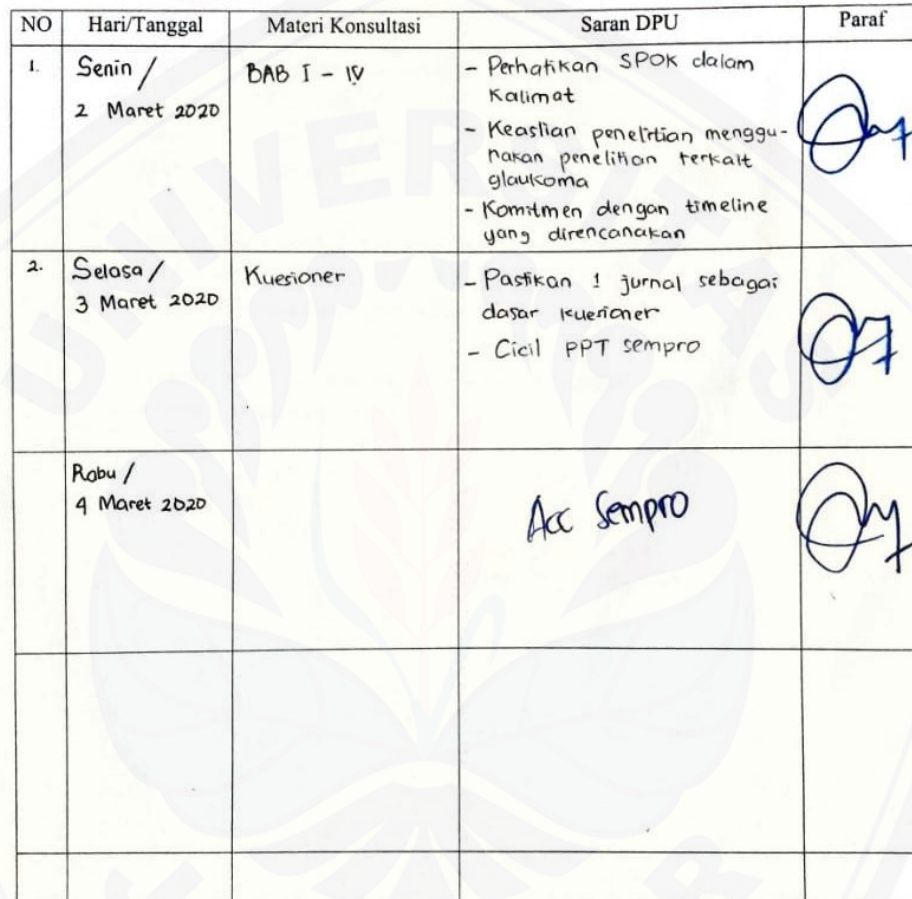 NO Hari/Tanggal Materi Konsultasi Saran DPU Paraf
1. Senin / BAB I - IV - Perhatikan SPOK dalam
2 Maret 2020 Kalimat
- Keaslian penelitian menggu-
nakan penelitian terkait
glaukoma
- Komitmen dengan timeline
yang direncanakan
2. Selasa / Kuesioner - Pastikan 1 jurnal sebagai
3 Maret 2020 dasar kuesioner
- Cicil PPT sempro
Rabu /
4 Maret 2020 Acc Sempro
UNIVERSITAS